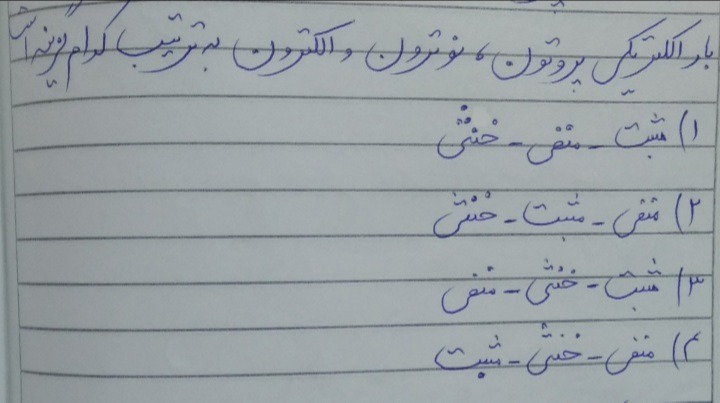 بار الکتریکی پروتون، نوترون و الکترون به ترتیب کدام گزینه است
۱) مثبت - منفی - خنثی
۲) منفی - مثبت - خنثی
۳) مثبت - خنثی - منفی
۴) منفی - خنثی - مثبت